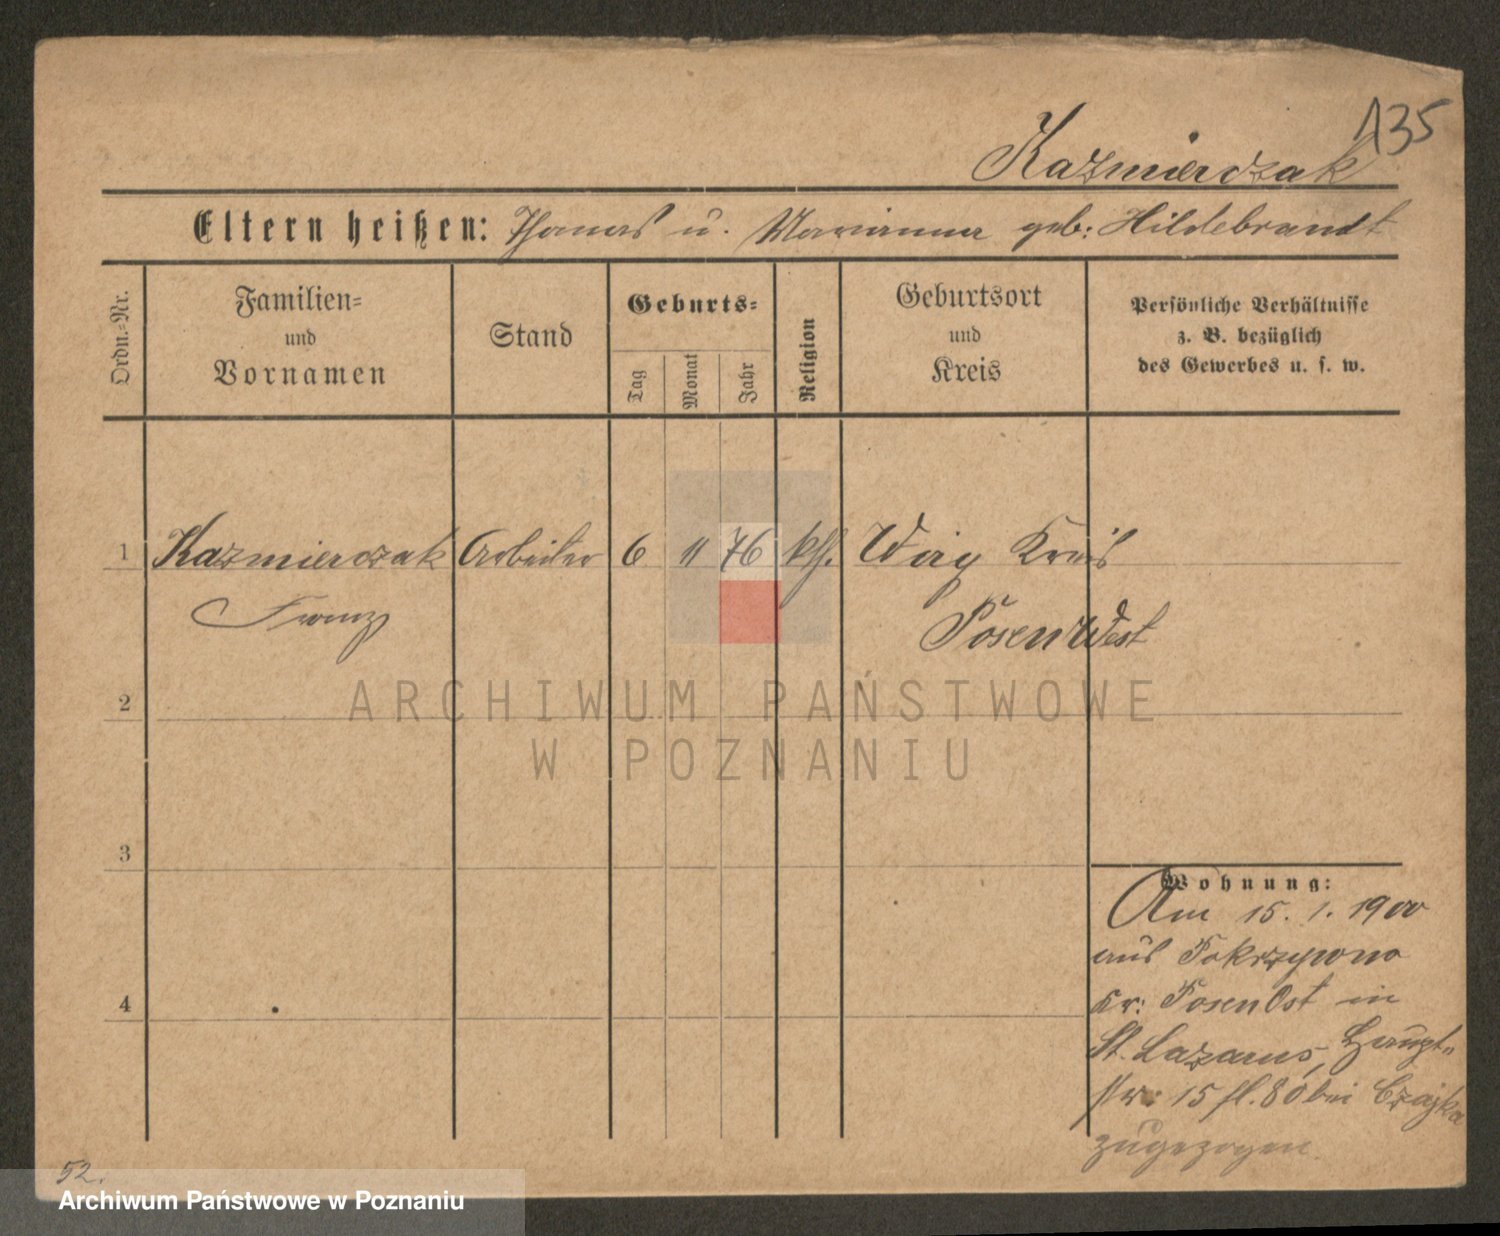 135
Kazmierczak
Eltern heißen: Thomas u. Marianna geb: Hildebrandt
Ordn.=Nr.
Familien=
und
Vornamen
Stand
Geburts=
Tag
Monat
Jahr
Religion
Geburtsort
und
Kreis
Persönliche Verhältnisse
z. B. bezüglich
des Gewerbes u. s. w.
1 Kazmierczak Arbeiter 6 11 76 kth. Kreis
Franz Posen West
2
3
4
Wohnung:
Am 15. 1. 1900
aus Pokrzywno
Kr: Posen Ost in
St. Lazarus, Haupt=
str: 15 bei Czajka
zugezogen.
52.
ARCHIWUM PAŃSTWOWE
W POZNANIU
Archiwum Państwowe w Poznaniu